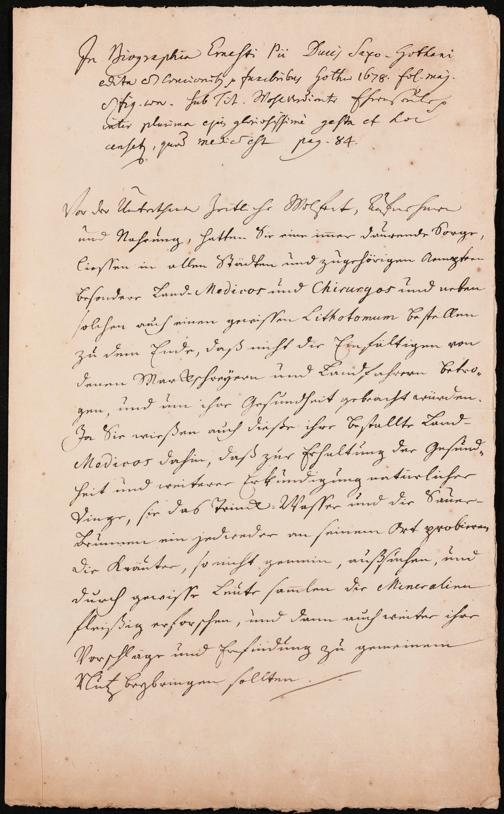 In Biographia Ernesti Pii Ducis Saxo-Gothani
edita Gothae 1678. fol. maj.
sub Tit. Wohlverdiente Ehren-Säule
inter plurima ejus gloriosissime gesta et hoc
censetur, quod medicis est pag. 84.
Vor der Unterthanen Zeitliche Wohlfart,
und Nahrung, hatten Sie eine immer daurende Sorge,
liessen in allen Städten und zugehörigen Aemptern
besondere Land-Medicos und Chirurgos und neben
solchen auch einen gewissen Lithotomum bestellen
zu dem Ende, daß nicht die Einfältigen von
denen Marcktschreyern und Landfahrern betro-
gen, und um ihre Gesundheit gebracht würden.
Ja Sie wießen auch dieße ihre bestallte Land-
Medicos dahin, daß zur Erhaltung der Gesund-
heit und weiterer Erkündigung natürlicher
Dinge, sie das Trinck-Wasser und die Sauer-
Brunnen ein jedweder an seinem Ort probieren
die Kräuter, so nicht gemein, außsuchen, und
durch gewisse Leute samlen die Mineralien
fleißig erforschen, und dann auch weiter ihre
Vorschläge und Erfindung zu gemeinem
Nutz beybringen sollten.